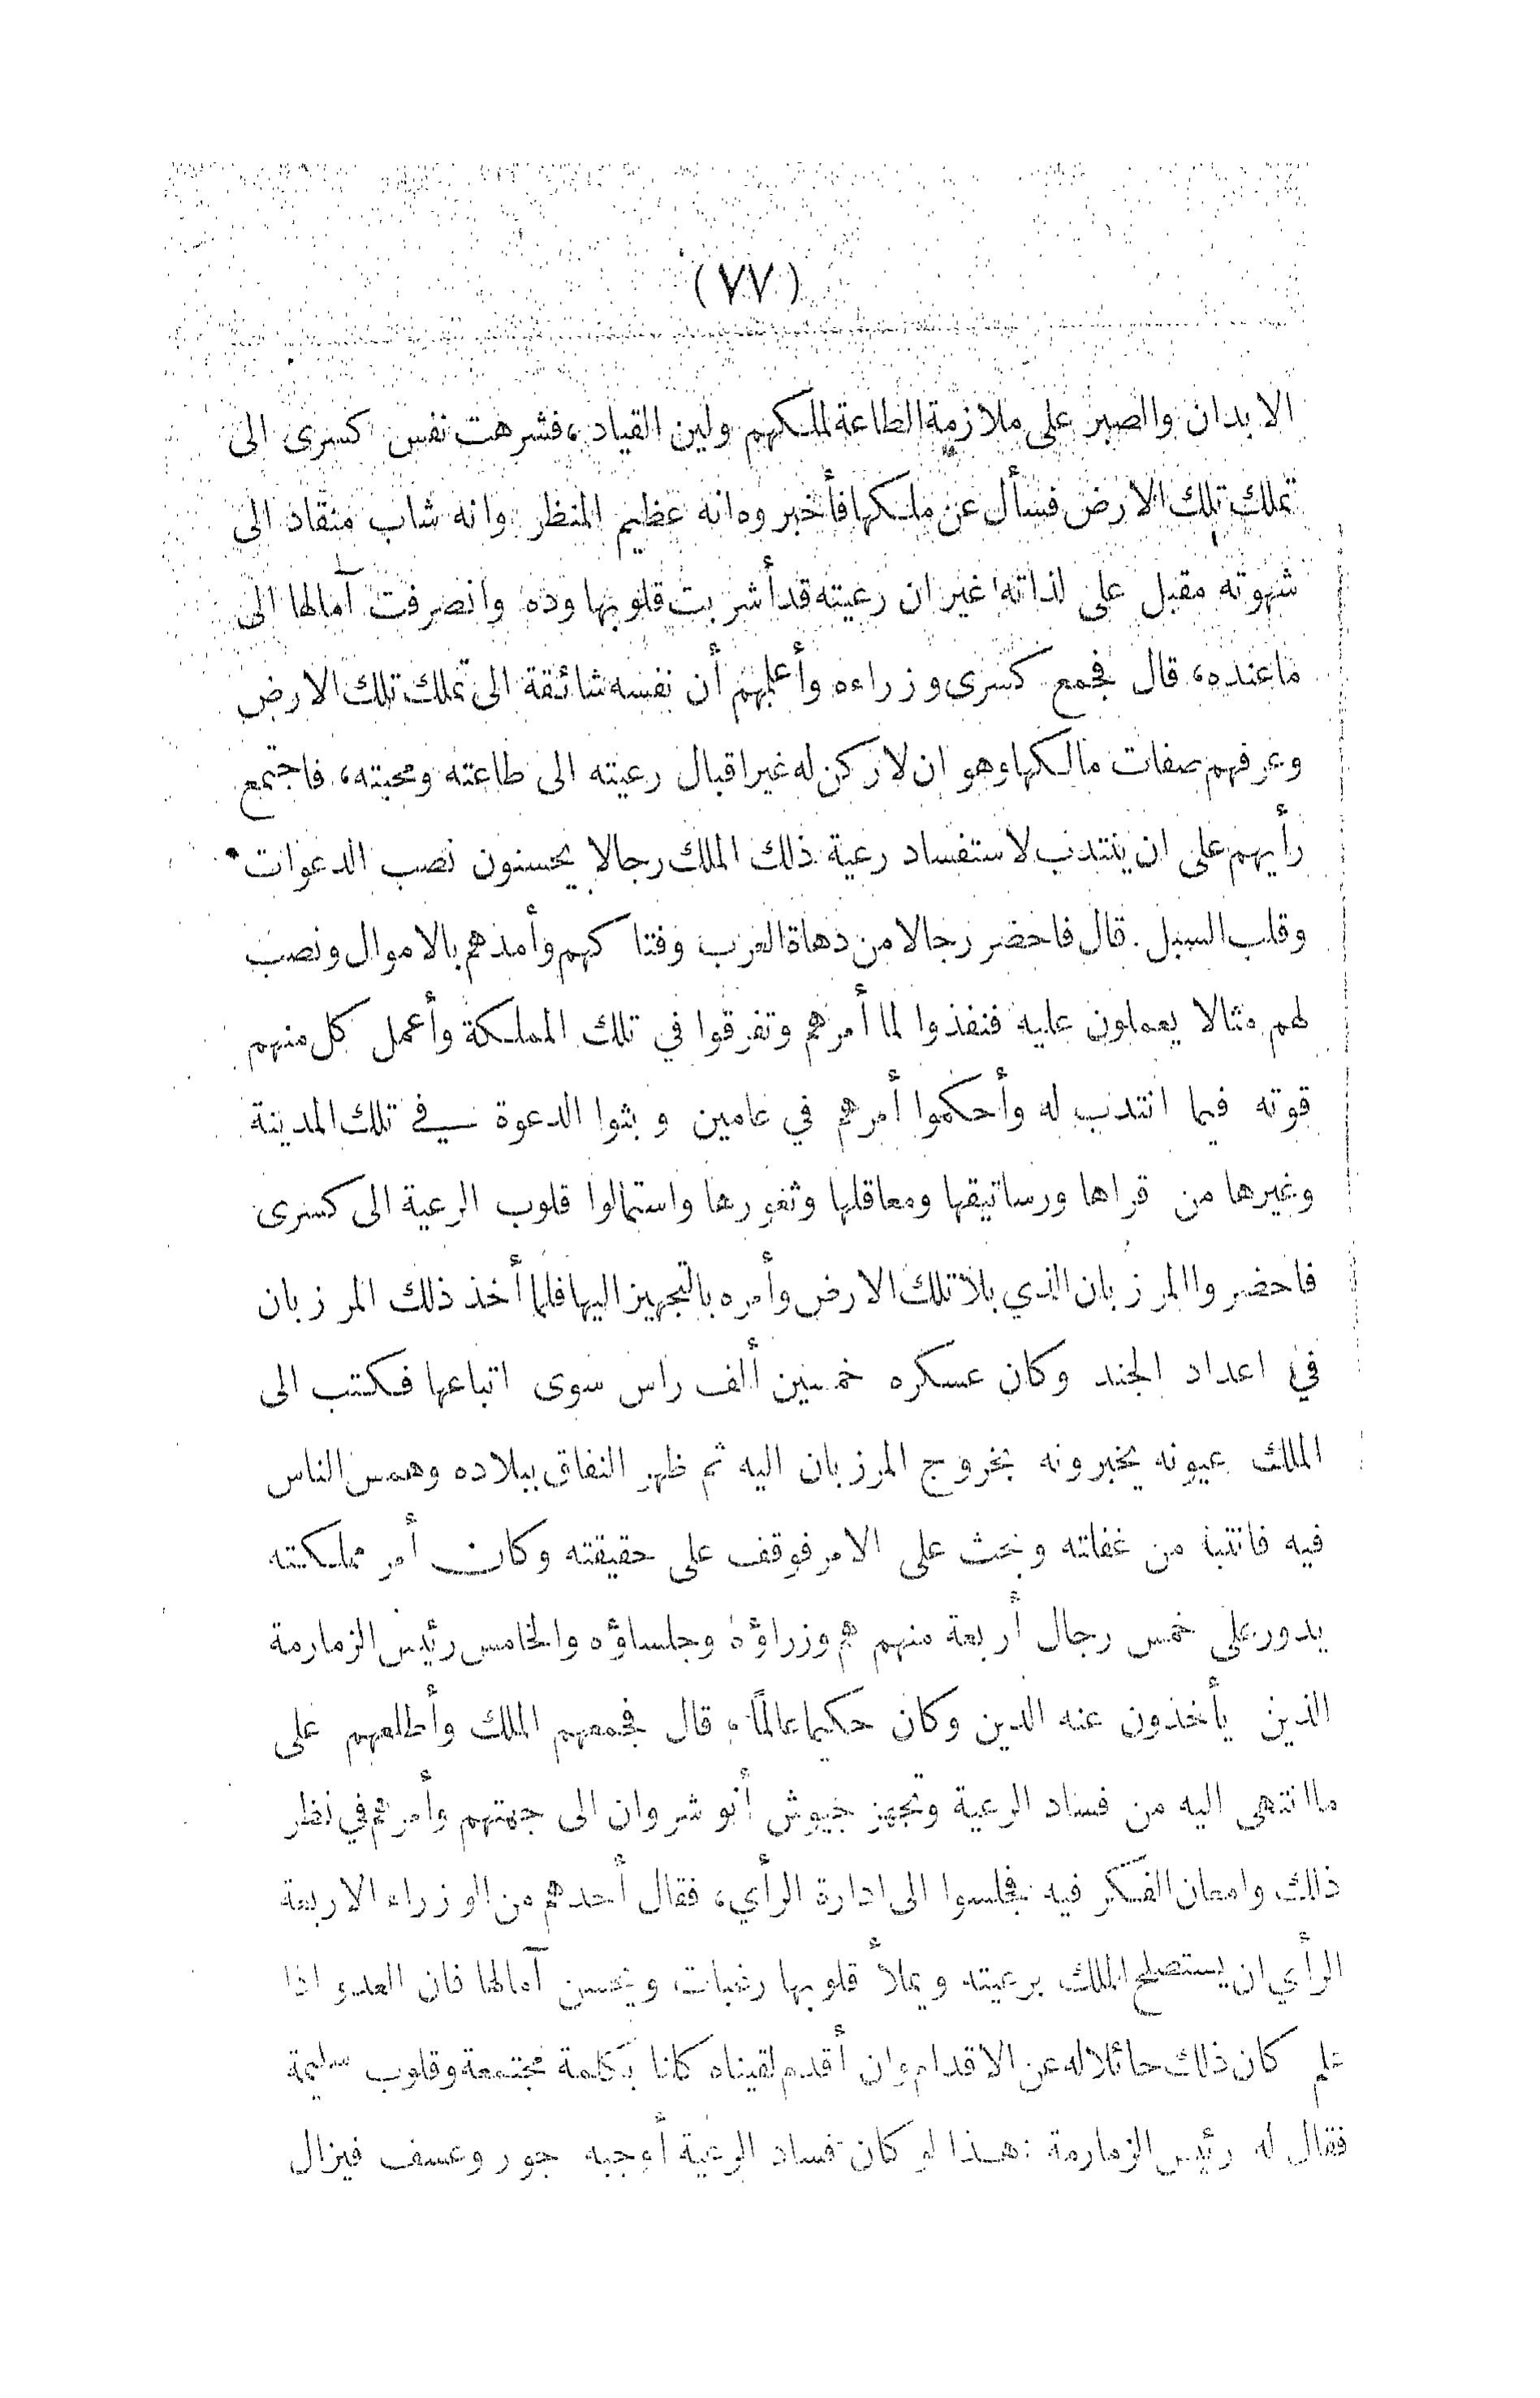 (٧٧)
الابدان والصبر على ملازمة الطاعة لملكهم ولين القياد، فشرهت نفس كسرى الى
تملك تلك الارض فسأل عن ملكها فأخبروه انه عظيم المنظر وانه شاب منقاد الى
شهوته مقبل على لذاته غير ان رعيته قد أشربت قلوبها وده وانصرفت آمالها الى
ماعنده، قال فجمع كسرى وزراءه وأعلمهم أن نفسه شائقة الى تملك تلك الارض
وعرفهم صفات مالكها وهو ان لا ركن له غير اقبال رعيته الى طاعته ومحبته، فاجتمع
رأيهم على ان ينتدب لاستفساد رعية ذلك الملك رجالا يحسنون نصب الدعوات
وقلب السبل. قال فاحضر رجالا من دهاة الغرب وفتاكهم وأمدهم بالاموال ونصب
لهم مثالا يعملون عليه فنفذوا لما أمرهم وتفرقوا في تلك المملكة وأعمل كل منهم
قوته فيما انتدب له وأحكموا أمرهم في عامين وبثوا الدعوة في تلك المدينة
وغيرها من قراها ورساتيقها ومعاقلها وثغورها واستمالوا قلوب الرعية الى كسرى
فاحضروا المرزبان الذي بلا تلك الارض وأمره بالتجهيز اليها فلما أخذ ذلك المرزبان
في اعداد الجند وكان عسكره خمسين ألف راس سوى اتباعها فكتب الى
الملك عيونه يخبرونه بخروج المرزبان اليه ثم ظهر النفاق ببلاده وهمس الناس
فيه فانتبه من غفلته وبحث على الامر فوقف على حقيقته وكان أمر مملكته
يدور على خمس رجال أربعة منهم هم وزراؤه وجلساؤه والخامس رئيس الزمارمة
الذين يأخذون عنه الدين وكان حكيما عالمًا، قال فجمعهم الملك وأطلعهم على
ما انتهى اليه من فساد الرعية وتجهز جيوش أنو شروان الى جهتهم وأمرهم في نظر
ذلك وامعان الفكر فيه فجلسوا الى ادارة الرأي، فقال أحدهم من الوزراء الاربعة
الرأي ان يستصلح الملك برعيته ويملأ قلوبها رغبات ويحسن آمالها فان العدو اذا
علم كان ذلك حائلا له عن الاقدام وان أقدم لقيناه كلنا بكلمة مجتمعة وقلوب سليمة
فقال له رئيس الزمارمة : هذا لو كان فساد الرعية أوجبه جور وعسف فيزال